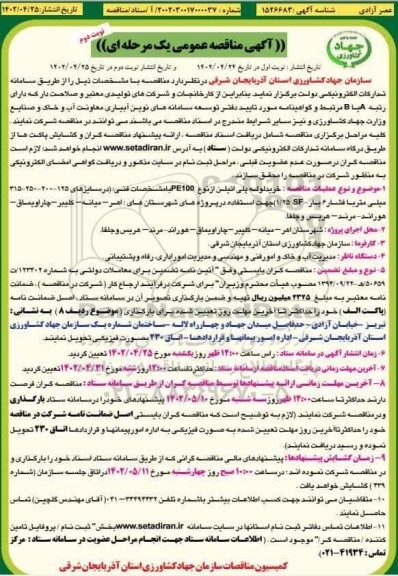 عصر آزادی شناسه آگهی :۱۵۲۶۶۸۳ شماره : ۲۰۰۲۳۰۰۱۷۰۰۰۰۳۷/ آ اسناد /مناقصه تاریخ انتشار:۱۴۰۲/۰۴/۲۵
جهاد کشاورزی
نوبت دوم
(( آگهی مناقصه عمومی یک مرحله ای))
تاریخ انتشار : نوبت اول در تاریخ ۱۴۰۲/۰۴/۲۴ و تاریخ انتشار نوبت دوم در تاریخ ۱۴۰۲/۰۴/۲۵
سازمان جهادکشاورزی استان آذربایجان شرقی درنظردارد مناقصه با مشخصات ذیل را از طریق سامانه
تدارکات الکترونیکی دولت برگزار نماید بنابراین از کارخانجات و شرکت های تولیدی معتبر و صلاحیت دار که دارای
رتبه A یا B مرتبط و گواهینامه مورد تایید دفتر توسعه سامانه های نوین آبیاری معاونت آب و خاک و صنایع
وزارت جهادکشاورزی و نیز سایر شرایط مندرج در اسناد مناقصه می باشند می توانند در مناقصه شرکت نمایند .
کلیه مراحل برگزاری مناقصه شامل دریافت اسناد مناقصه ، ارائه پیشنهاد مناقصه گران و گشایش پاکت ها از
طریق درگاه سامانه تدارکات الکترونیکی دولت ( ستاد ) به آدرس www.setadiran.ir انجام خواهد شد؛ لازم است
مناقصه گران درصورت عدم عضویت قبلی ، مراحل ثبت نام در سایت مذکور و دریافت گواهی امضای الکترونیکی
به منظور شرکت در مناقصه را محقق سازند.
۱-موضوع و نوع عملیات مناقصه : خریدلوله پلی اتیلن از نوع PE100بامشخصات فنی: (درسایزهای ۱۲۵-۲۰۰-۲۵۰-۳۱۵
میلی متربا فشار۶ بار- SF ۱/۲۵)جهت استفاده درپروژه های شهرستان های : اهر- میانه- کلیبر -چاراویماق-
هوراند- مرند- هریس و جلفا.
۲- محل اجرای پروژه : شهرستان اهر-میانه-کلیبر-چاراویماق-هوراند- مرند- هریس وجلفا.
۳-کارفرما : سازمان جهادکشاورزی استان آذربایجان شرقی.
۴- دستگاه ناظر : مدیریت آب و خاک و امورفنی و مهندسی و مدیریت امور اراری، رفاه وپشتیبانی.
۵- نوع و مبلغ تضمین : مناقصه گران بایستی وفق " آئین نامه تضمین برای معاملات دولتی به شماره ۱۲۳۴۰۲/ت
۵۰۶۵۹هـ -۱۳۹۴/۰۹/۲۲ مصوب هیأت محترم وزیران" برای شرکت درفرآیند ارجاع کار ( شرکت در مناقصه ) ، ضمانت
نامه معتبر به مبلغ ۲۳۳۵ میلیون ریال تهیه و ضمن بارگذاری تصویر آن در سامانه ستاد، اصل ضمانت نامه
(پاکت الف ) خود را حداکثر تا آخرین مهلت روز تعیین شده برای بارگذاری ( موضوع ردیف ۸ ) به نشانی :
تبریز -خیابان آزادی- حدفاصل میدان جهاد و چهارراه لاله -ساختمان شماره یک سازمان جهاد کشاورزی
استان آذربایجان شرقی- اداره امور پیمانها و قراردادها- اتاق ۲۳۰ بصورت فیزیکی تحویل نمایند.
۶- زمان انتشار آگهی در سامانه ستاد : راس ساعت ۱۴:۰۰ ظهر روز یکشنبه مورخ ۱۴۰۲/۰۴/۲۵ تعیین گردید.
۷- آخرین مهلت زمانی دریافت اسناد مناقصه ازسامانه ستاد: حداکثر تاساعت ۱۴:۰۰ روزشنبه مورخ ۱۴۰۲/۰۴/۳۱ تعیین گردید.
۸- آخرین مهلت زمانی ارائه پیشنهادها توسط مناقصه گران از طریق سامانه ستاد : مناقصه گران فرصت
دارند حداکثر تا ساعت ۱۴:۰۰ ظهر روز سه شنبه مورخ ۱۴۰۲/۰۵/۱۰ پیشنهادهای خود را درسامانه ستاد بارگذاری
و در مناقصه شرکت نمایند. (لازم به توضیح است که مناقصه گران بایستی اصل ضمانت نامه شرکت در مناقصه
خود را حداکثر تا آخرین روز مهلت تعیین شده به صورت فیزیکی به اداره امور پیمانها و قراردادها اتاق ۲۳۰ تحویل
نموده و رسید دریافت نمایند).
۹- زمان گشایش پیشنهادها : پیشنهادهای مالی مناقصه گرانی که از طریق سامانه ستاد اسناد خود را بارگذاری و
در مناقصه شرکت نموده اند؛ درساعت ۱۰:۰۰ صبح روز چهارشنبه مورخ ۱۴۰۲/۰۵/۱۱ دراتاق جلسه سازمان (شماره
۳۳۹ ) گشایش خواهد یافت .
۱۰- متقاضیان می توانند جهت کسب اطلاعات بیشتر باشماره تلفن ۳۴۴۹۴۴۳۳- ۰۴۱ ( آقای مهندس گلچین) تماس
حاصل نمایند .
۱۱- اطلاعات تماس دفاتر ثبت نام استانها در سایت سامانه www.setadiran.ir بخش" ثبت نام / پروفایل تامین
کننده / مناقصه گر" موجود است . ( اطلاعات سامانه ستاد جهت انجام مراحل عضویت در سامانه ستاد : مرکز
تماس: ۴۱۹۳۴-۰۲۱).
کمیسیون مناقصات سازمان جهاد کشاورزی استان آذربایجان شرقی